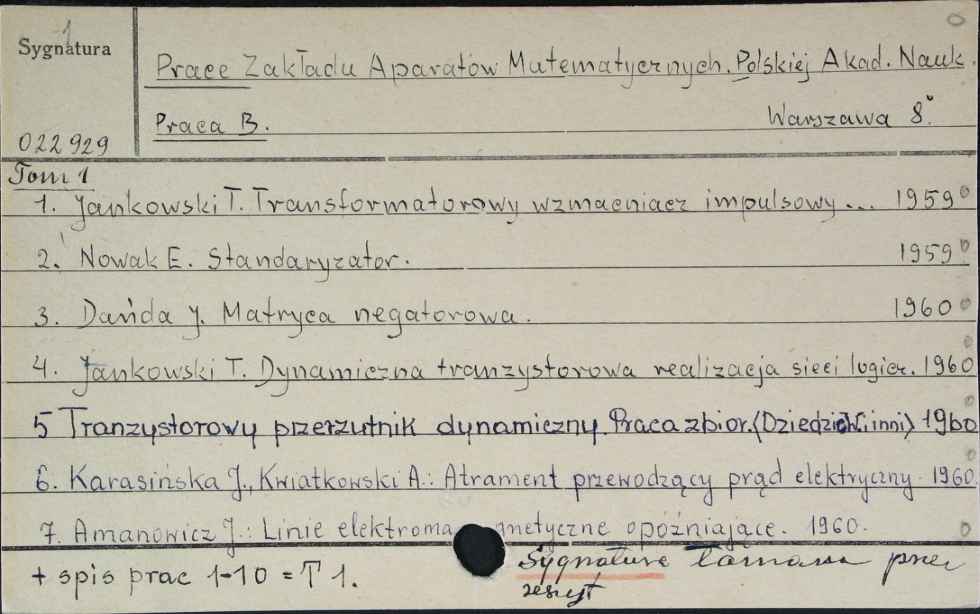 Sygnatura
Prace Zakładu Aparatów Matematycznych. Polskiej Akad. Nauk.
Praca B. Warszawa 8°
022929
Tom 1
1. Jankowski T. Transformatorowy wzmacniacz impulsowy... 1959
2. Nowak E. Standaryzator. 1959
3. Dańda J. Matryca negatorowa. 1960
4. Jankowski T. Dynamiczna tranzystorowa realizacja sieci logicz. 1960
5 Tranzystorowy przerzutnik dynamiczny. Praca zbior. (Dziedzic i inni) 1960
6. Karasińska J., Kwiatkowski A.: Atrament przewodzący prąd elektryczny. 1960.
7. Amanowicz J.: Linie elektromagnetyczne opóźniające. 1960.
+ spis prac 1-10 = T 1. Sygnature łamana przez
zeszyt